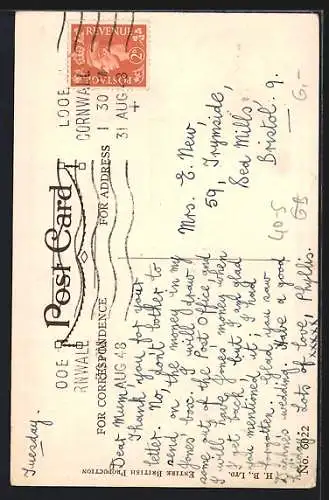 Tuesday.
Post Card
FOR CORRESPONDENCE
FOR ADDRESS
ENTIRE BRITISH PRODUCTION
H. B., LTD.
No. 6022
REVENUE
POSTAGE
LOOE
CORNWALL
1 30
31 AUG 48
OOE
RNWALL
AUG 48
Dear Mum,
Thank you for your
letter. No, don't bother to
send on the money in my
Jones box. I will draw
some out of the Post Office and
I will have Jones' money when
I get back, but I am glad
you mentioned it, I had
forgotten. Glad you saw
wedding. Have a good
Lots of love, Phyllis.
xxxxx
Mrs. E. New,
59, Trymside,
Sea Mills,
Bristol. 9.
6,-
40-5
GB